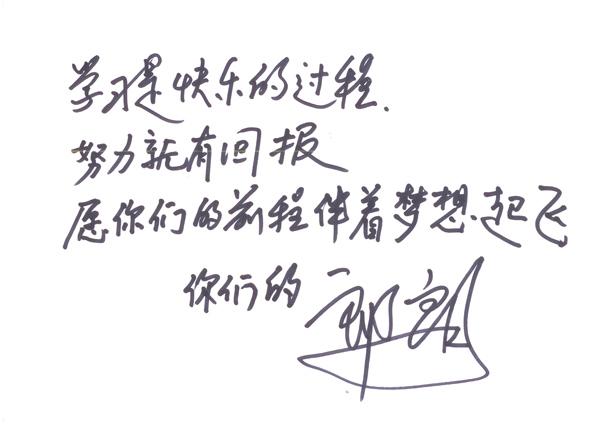 学习是快乐的过程.
努力就有回报
愿你们的前程伴着梦想起飞
你们的